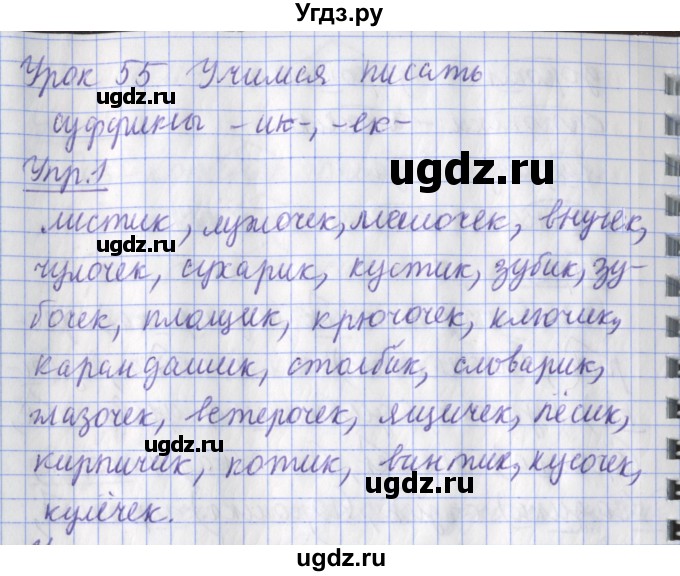 Угдз.ру
Урок 55 Учимся писать
ugdz.ru
суффиксы -ик-, -ек-
ugdz.ru
Упр.1
листик, лужочек, мешочек, внучек,
ugdz.ru
чулочек, сухарик, кустик, зубик, зу-
бочек, плащик, крючочек, ключик,
ugdz.ru
карандашик, столбик, словарик,
глазочек, ветерочек, ящичек, пёсик,
ugdz.ru
кирпичик, котик, бантик, кусочек,
ugdz.ru
кулёчек.
ugdz.ru